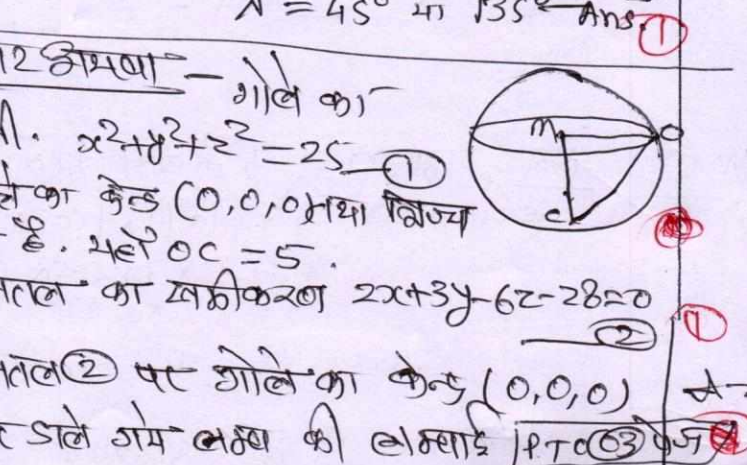 = 45° या 135° Ans. ①
12 अथवा – गोले का
x²+y²+z² = 25 — ①
का केन्द्र (0,0,0) तथा त्रिज्य
है. यहाँ OC = 5.
M O
C
का समीकरण 2x+3y-6z-28=0
② ①
② पर गोले का केन्द्र (0,0,0)
डाले गये लम्ब की लम्बाई P.T.O ③ पेज